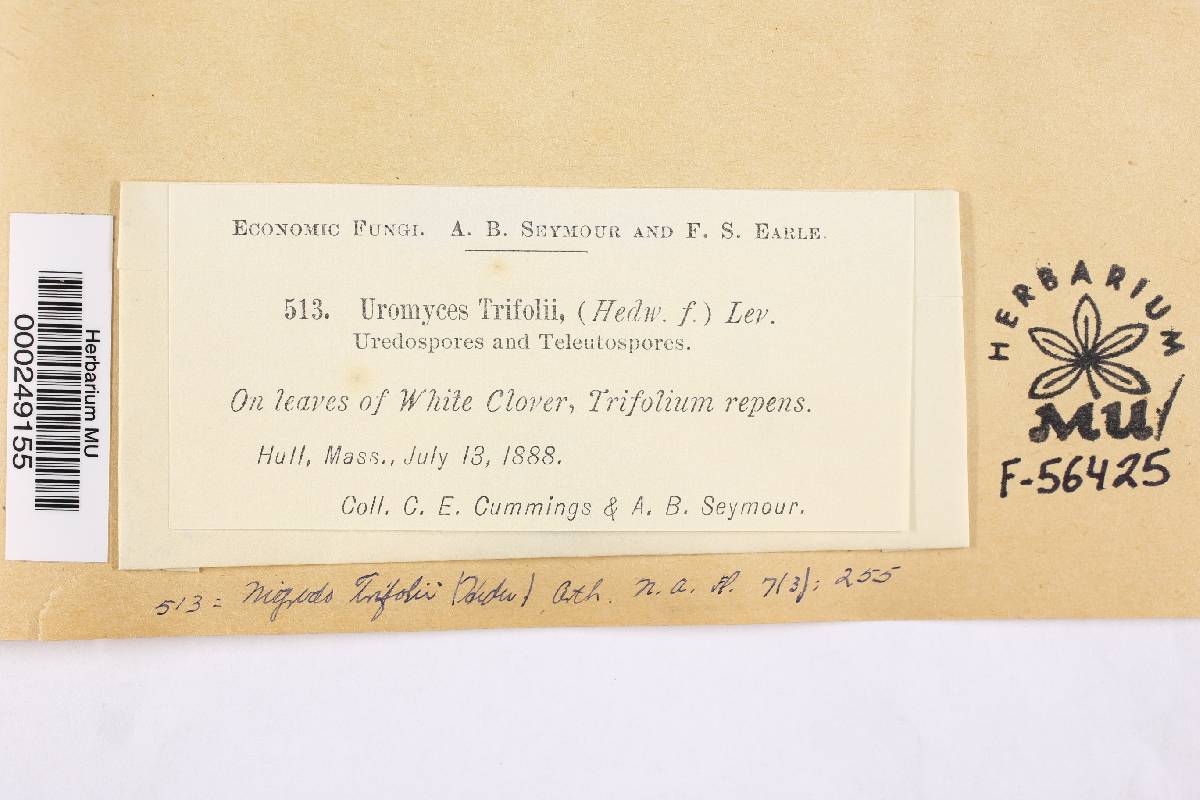 ECONOMIC FUNGI. A. B. SEYMOUR AND F. S. EARLE.
513. Uromyces Trifolii, (Hedw. f.) Lev.
Uredospores and Teleutospores.
On leaves of White Clover, Trifolium repens.
Hull, Mass., July 13, 1888.
Coll. C. E. Cummings & A. B. Seymour.
Herbarium MU
000249155
HERBARIUM
MU
F-56425
513 = Nigredo Trifolii (Hedw) Arth. N. A. Fl. 7(3): 255